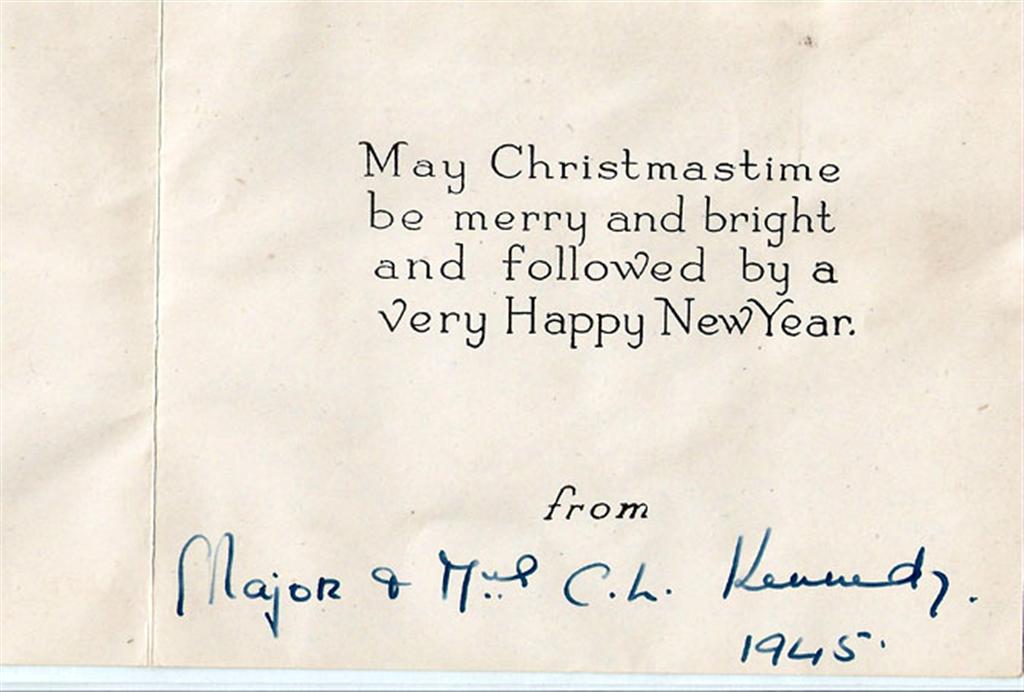 May Christmastime
be merry and bright
and followed by a
very Happy New Year.
from
Major & Mrs C.L. Kennedy.
1945.